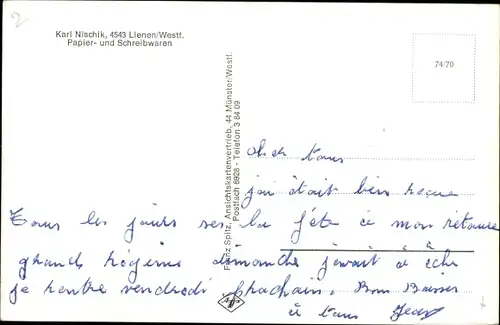 2
Karl Nischik, 4543 Lienen/Westf.
Papier- und Schreibwaren
74/70
Franz Spitz, Ansichtskartenvertrieb, 44 Münster/Westf.
Postfach 6928 - Telefon 3 84 09
Cher tous
j'ai était bien reçue
Tous les jours ses la fête a mon retoure
grands dimanche a
je rentre vendredi prochain, Bon Baiser
à tous Jean